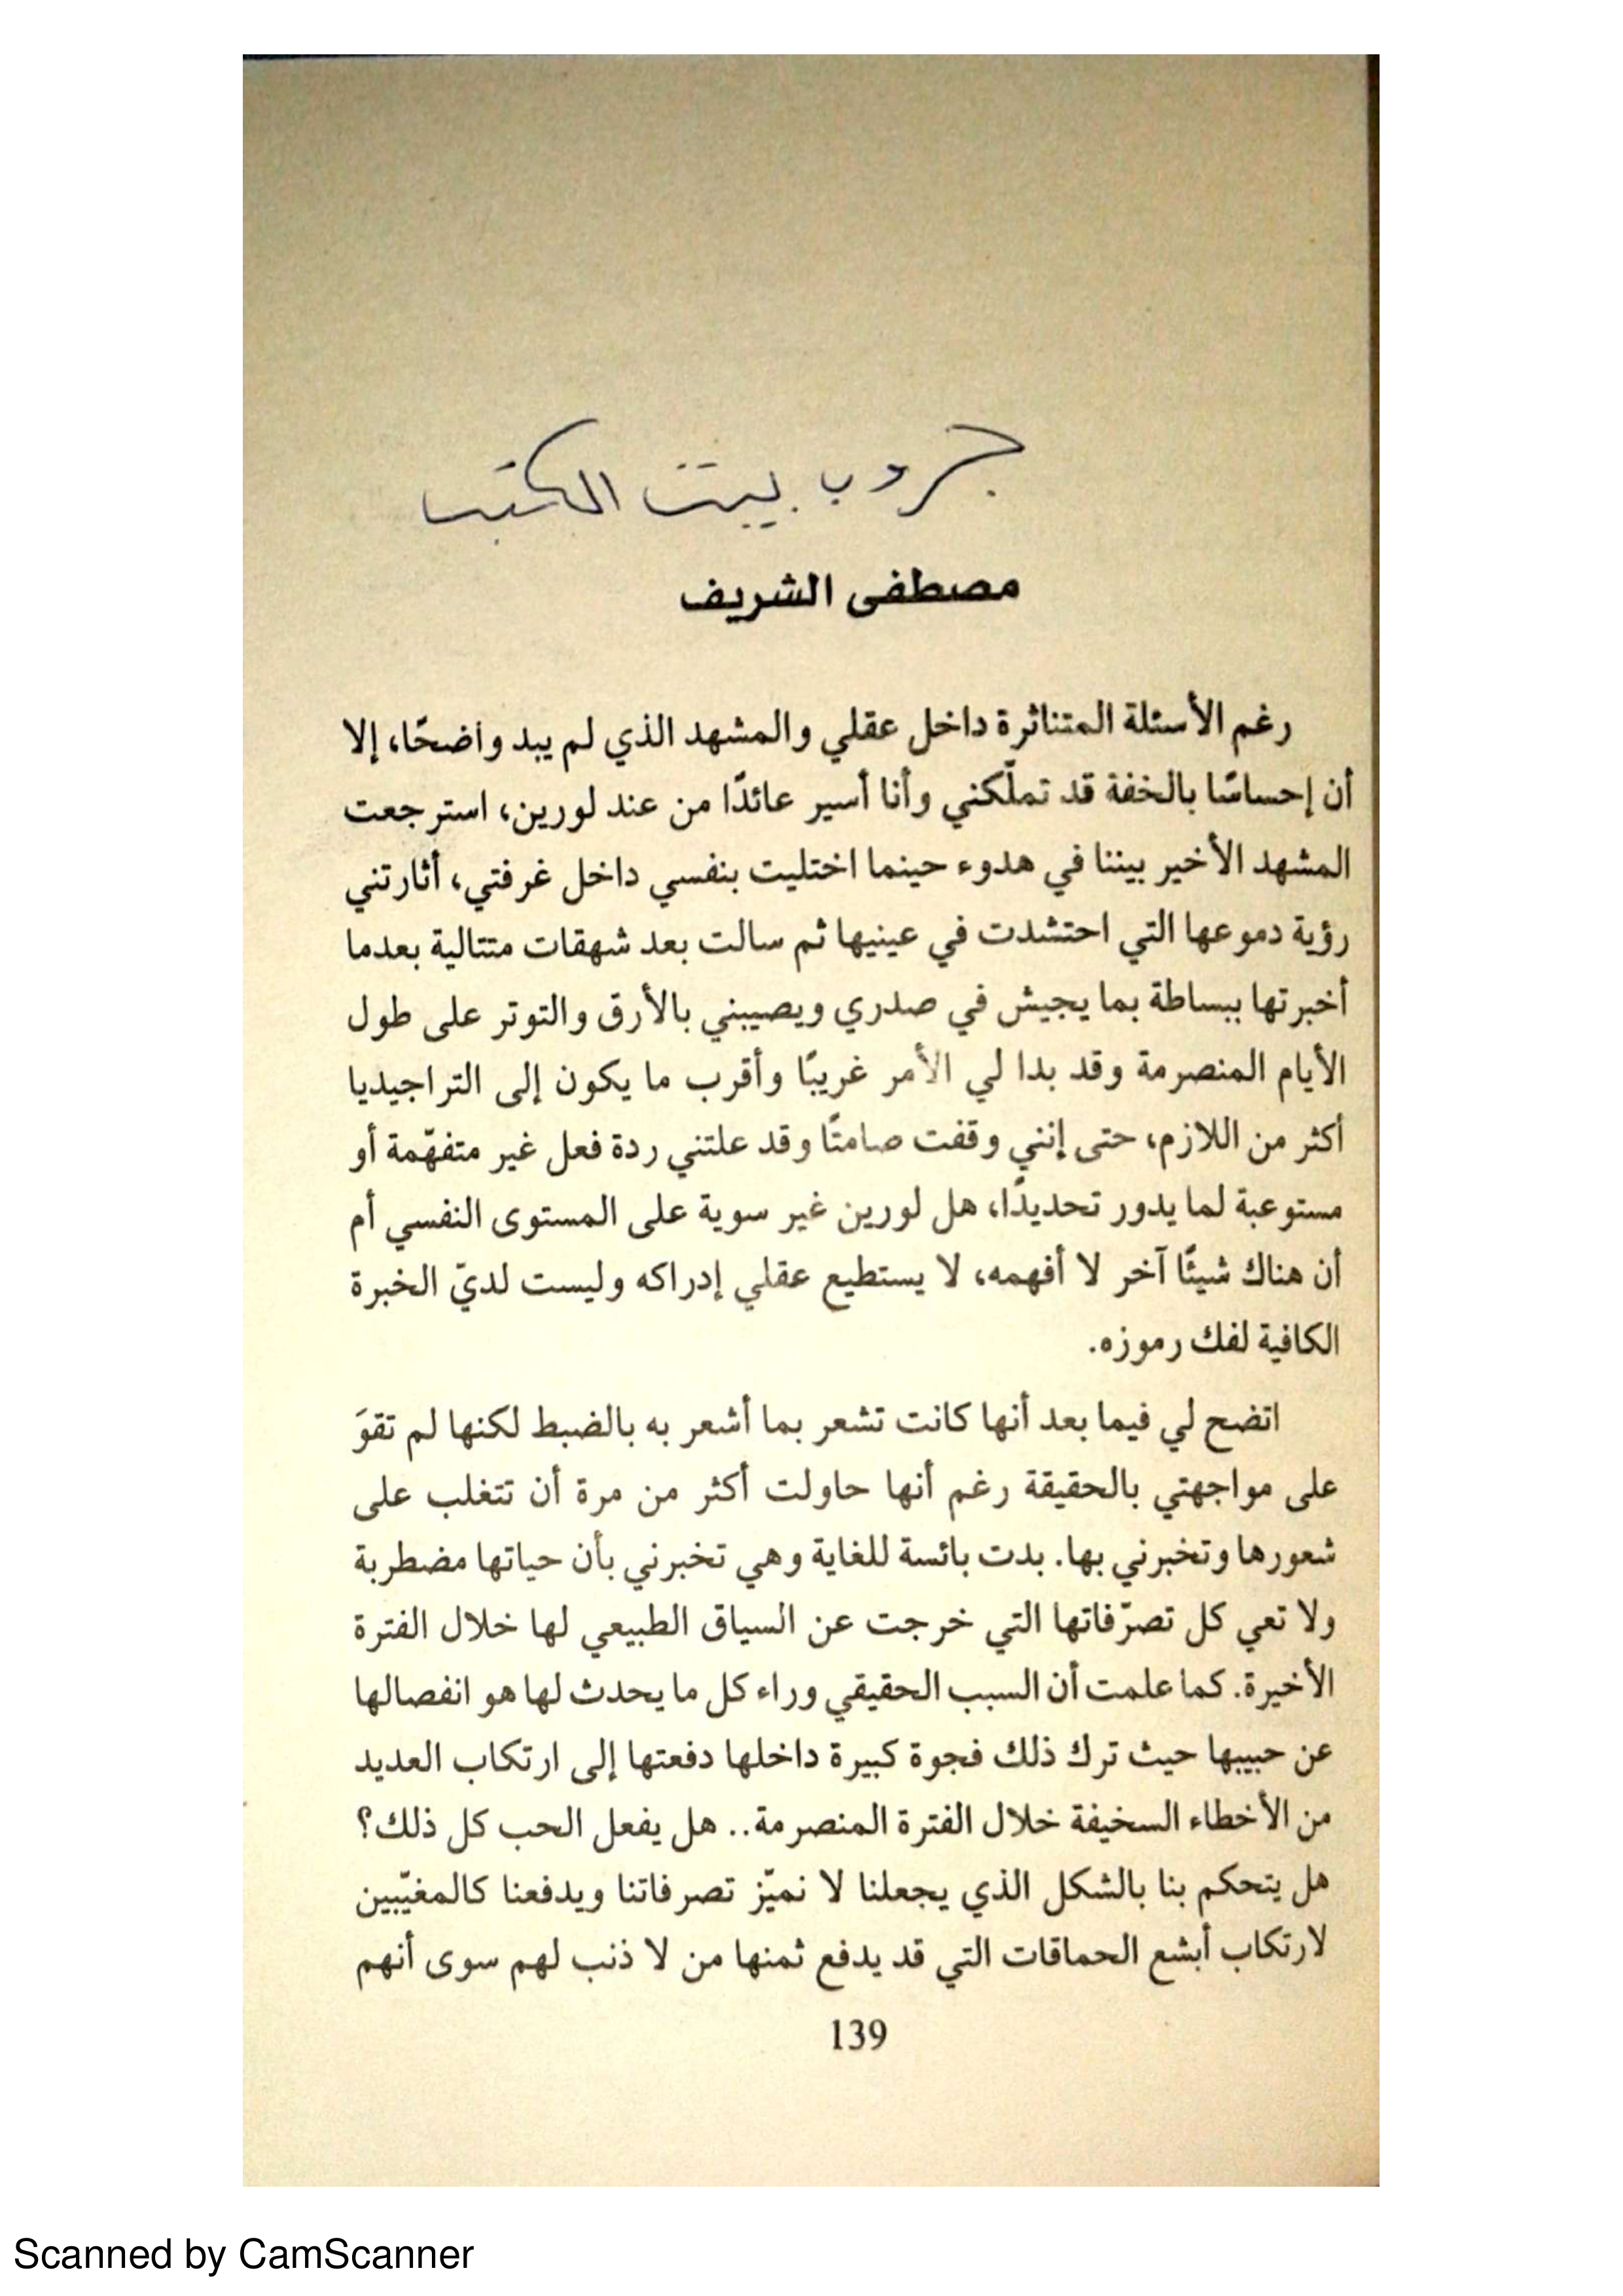 جروب بيت الكتب
مصطفى الشريف
رغم الأسئلة المتناثرة داخل عقلي والمشهد الذي لم يبد واضحًا، إلا
أن إحساسًا بالخفة قد تملّكني وأنا أسير عائدًا من عند لورين، استرجعت
المشهد الأخير بيننا في هدوء حينما اختليت بنفسي داخل غرفتي، أثارتني
رؤية دموعها التي احتشدت في عينيها ثم سالت بعد شهقات متتالية بعدما
أخبرتها ببساطة بما يجيش في صدري ويصيبني بالأرق والتوتر على طول
الأيام المنصرمة وقد بدا لي الأمر غريبًا وأقرب ما يكون إلى التراجيديا
أكثر من اللازم، حتى إنني وقفت صامتًا وقد علتني ردة فعل غير متفهّمة أو
مستوعبة لما يدور تحديدًا، هل لورين غير سوية على المستوى النفسي أم
أن هناك شيئًا آخر لا أفهمه، لا يستطيع عقلي إدراكه وليست لديّ الخبرة
الكافية لفك رموزه.
اتضح لي فيما بعد أنها كانت تشعر بما أشعر به بالضبط لكنها لم تقوَ
على مواجهتي بالحقيقة رغم أنها حاولت أكثر من مرة أن تتغلب على
شعورها وتخبرني بها. بدت بائسة للغاية وهي تخبرني بأن حياتها مضطربة
ولا تعي كل تصرّفاتها التي خرجت عن السياق الطبيعي لها خلال الفترة
الأخيرة. كما علمت أن السبب الحقيقي وراء كل ما يحدث لها هو انفصالها
عن حبيبها حيث ترك ذلك فجوة كبيرة داخلها دفعتها إلى ارتكاب العديد
من الأخطاء السخيفة خلال الفترة المنصرمة.. هل يفعل الحب كل ذلك؟
هل يتحكم بنا بالشكل الذي يجعلنا لا نميّز تصرفاتنا ويدفعنا كالمغيّبين
لارتكاب أبشع الحماقات التي قد يدفع ثمنها من لا ذنب لهم سوى أنهم
139
Scanned by CamScanner